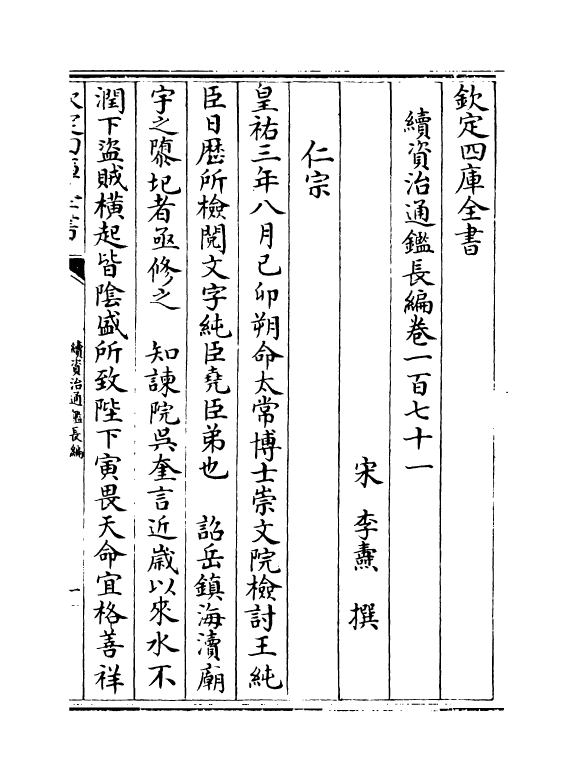 欽定四庫全書
續資治通鑑長編卷一百七十一
宋 李燾 撰
仁宗
皇祐三年八月己卯朔命太常博士崇文院檢討王純
臣日歴所檢閱文字純臣堯臣弟也 詔岳鎮海瀆廟
宇之隳圮者亟修之 知諫院吳奎言近歲以來水不
潤下盜賊橫起皆陰盛所致陛下寅畏天命宜格善祥
欽定四庫全書
續資治通鑑長編
一